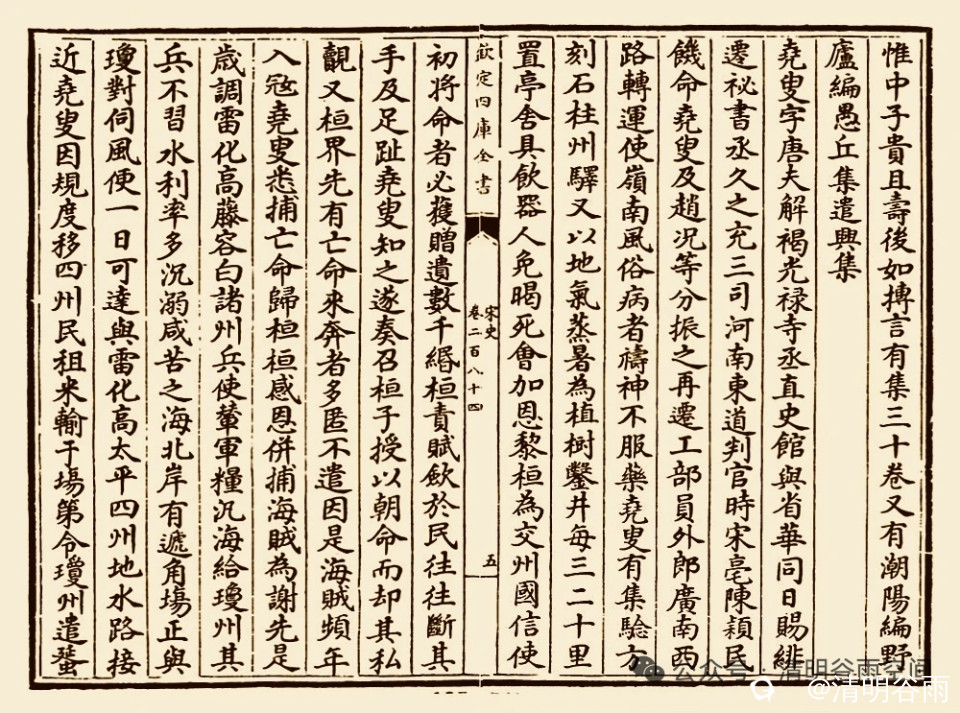 惟中子貴且壽後如摶言有集三十卷又有潮陽編野
廬編愚丘集遣興集
堯叟字唐夫解褐光禄寺丞直史館與省華同日賜緋
遷祕書丞久之充三司河南東道判官時宋亳陳潁民
饑命堯叟及趙況等分振之再遷工部員外郎廣南西
路轉運使嶺南風俗病者禱神不服藥堯叟有集驗方
刻石柱州驛又以地氣蒸暑為植樹鑿井每三二十里
置亭舍具飲器人免暍死會加恩黎桓為交州國信使
欽定四庫全書
宋史
卷二百八十四
五
初將命者必獲贈遺數千緡桓責賦斂於民往往斷其
手及足趾堯叟知之遂奏召桓子授以朝命而却其私
覿又桓界先有亡命來奔者多匿不遣因是海賊頻年
入宼堯叟悉捕亡命歸桓桓感恩併捕海賊為謝先是
歲調雷化高藤容白諸州兵使輦軍糧汎海給瓊州其
兵不習水利率多沉溺咸苦之海北岸有遞角場正與
瓊對伺風便一日可達與雷化高太平四州地水路接
近堯叟因規度移四州民租米輸于場第令瓊州遣蜑
公众号·清明谷雨空间
@清明谷雨